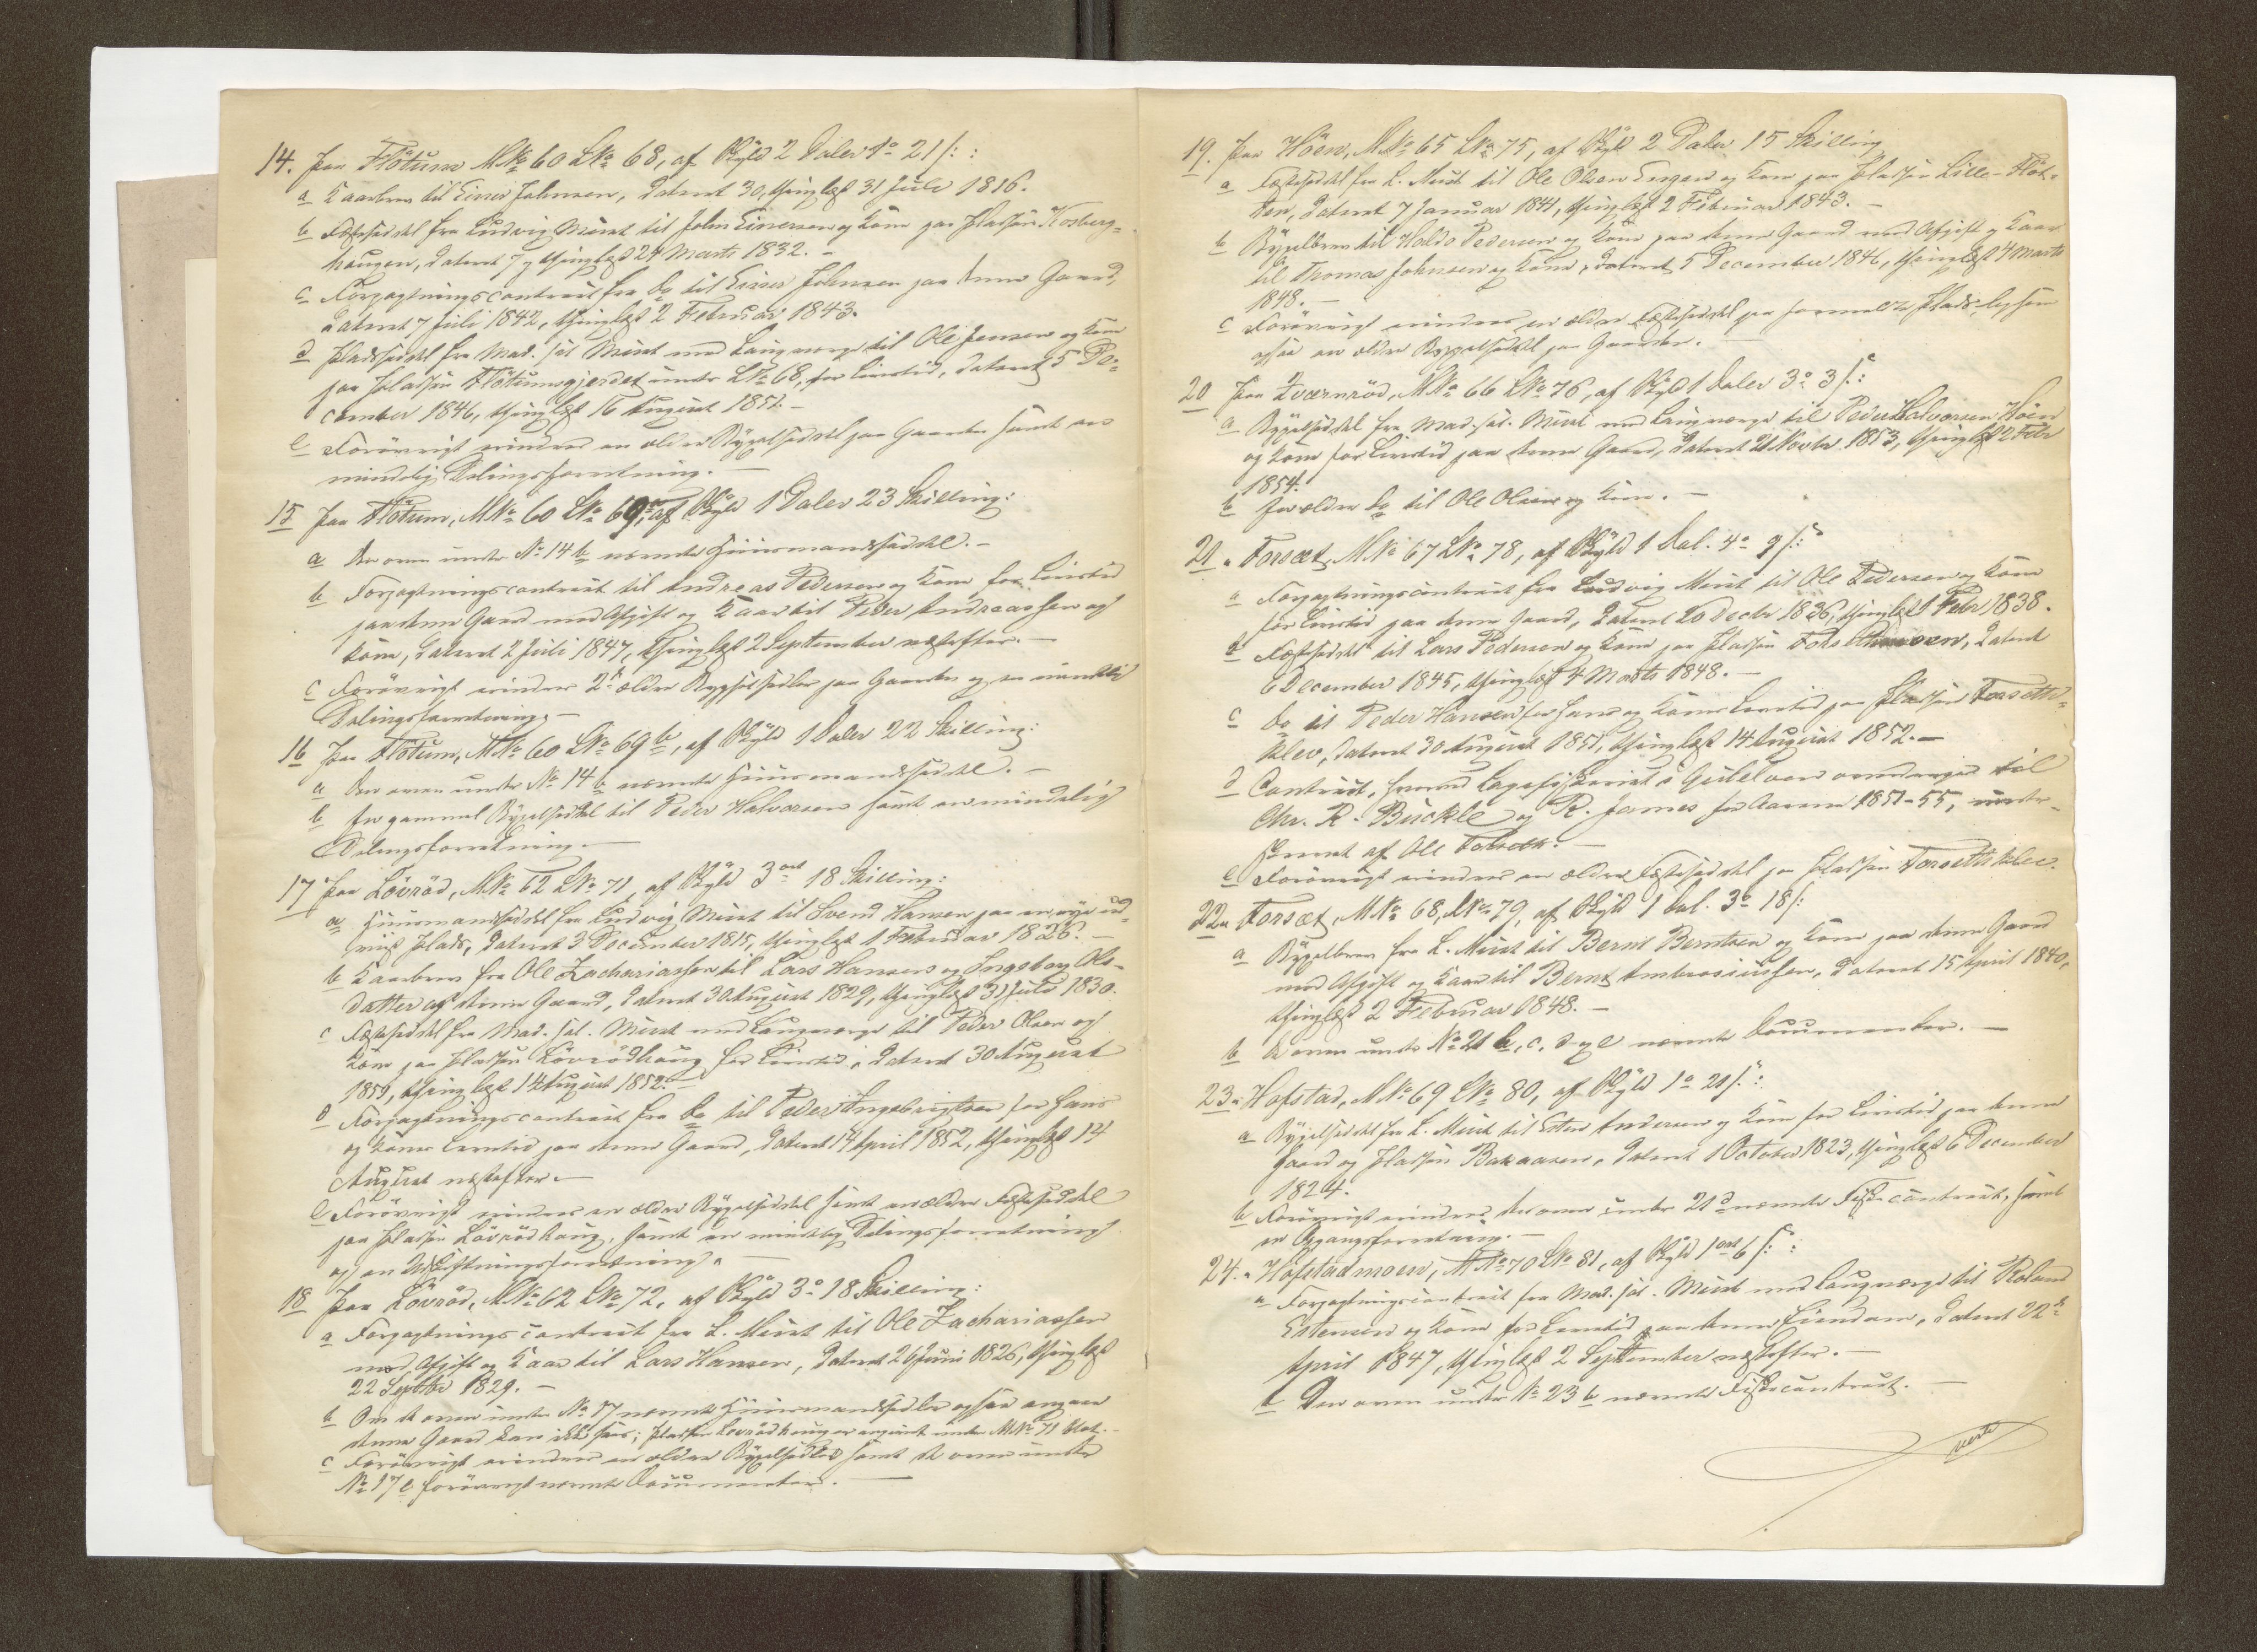 14. paa Flötum M.№ 60 L.№ 68, af Skyld 2 Daler 1o 21 s:
a Kaarbrev til Einer Johnsen, dateret 30, thinglæst 31 Juli 1816.
b Fæstesædel fra Ludvig Must til John Einersen og Kone paa Pladsen Kosberg-
haugen, dateret 7 og thinglæst 24 Marts 1832. -
c Forpagtningscontract fra do til Einer Johnsen paa denne Gaard,
dateret 7 Juli 1842, thinglæst 2 Februar 1843.
d Pladssedel fra Mad. sal. Must med Laugværge til Ole Jensen og Kone
paa Pladsen Flötumsgjerdet under L№ 68, for Livstid, dateret 5 De-
cember 1846, thinglæst 16 August 1851. -
e Forövrigt erindres en ældre Bygselseddel paa Gaarden samt en
mindelig Delingsforretning. -
15 paa Flötum, M№ 60 L№ 69a, af Skyld 1 Daler 23 Skilling:
a Den oven under № 14 b nævnte Huusmandsseddel. -
b Forpagtningscontract til Andreas Pedersen og Kone for Livstid
paa denne Gaard med Afgift og Kaar til Peder Andreassen og
Kone, dateret 2 Juli 1847, thinglæst 2 September næstefter. -
c Forövrigt erindres 2de ældre Bygselsedler paa Gaarden og en mindelig
Delingsforretning -
16 paa Flötum, M№ 60 L№ 69b, af Skyld 1 Daler 22 Skilling:
a Den oven under № 14 b nævnte Huusmandsseddel. -
b En gammel Bygselseddel til Peder Halvorsen samt en mindelig
Delingsforretning. -
17 paa Lövröd, M№ 62 L№ 71, af Skyld 3 ort 18 Skilling:
a Huusmandsseddel fra Ludvig Must til Svend Hansen paa en nye ud-
viist Plads, dateret 3 December 1815, thinglæst 1 Februar 1826. -
b Kaarbrev fra Ole Zachariassen til Lars Hansen og Ingeborg Ols-
datter af denne Gaard, dateret 30 August 1829, thinglæst 31 Juli 1830.
c Fæsteseddel fra Mad. sal. Must med Laugværge til Peder Olsen og
Kone paa Pladsen Lövrödhaug for Livstid, dateret 30 August
1851, thinglæst 14 August 1852. -
d Forpagtningscontract fra do til Peder Ingebrigtsen for hans
og Kones Levetid paa denne Gaard, dateret 14 April 1852, thinglæst 14
August næstefter. -
e Forövrigt erindres en ældre Bygselseddel samt en ældre Fæsteseddel
paa Pladsen Lövrödhaug, samt en mindelig Delingsforretning
og en Udskiftningsforretning.
18 paa Lövröd, M№ 62 L№ 72, af Skyld 3o 18 Skilling:
a Forpagtningscontract fra L. Must til Ole Zachariassen
med Afgift og Kaar til Lars Hansen, dateret 26 Juni 1826, thinglæst
22 Septbr 1829. -
b Om de oven under № 17 nævnte Huusmandssedler ogsaa angaaer
denne Gaard kan ikke sees; Pladsen Lövrödhaug er anført under M№ 71
c Forövrigt erindres en ældre Bygselseddel samt de oven under
№ 17 e forövrigt nævnte Documenter. -
19. paa Höen, M.№ 65 L№ 75, af Skyld 2 Daler 15 Skilling
a Fæsteseddel fra L. Must til Ole Olsen Engan og Kone paa Pladsen Lille-Flöt-
ten, dateret 7 Januar 1841, thinglæst 2 Februar 1843. -
b Bygselbrev til Haldo Pedersen og Kone paa denne Gaard med Afgift og Kaar
til Thomas Johnsen og Kone, dateret 5 December 1846, thinglæst 4 Marts
1848. -
c Forövrigt erindres en ældre Fæsteseddel paa formeldte Plads ligesom
ogsaa en ældre Bygselseddel paa Gaarden.
20 paa Zværnröd, M№ 66 L№ 76, af Skyld 1 Daler 3o 3 s:
a Bygselseddel fra Mad. sal. Must med Laugværge til Peder Halvorsen Höen
og Kone for Livstid paa denne Gaard, dateret 21 Novbr 1853, thinglæst 2 Febr
1854.
b En ældre do til Ole Olsen og Kone. -
21 " Forsæt, M№ 67 L№ 78, af Skyld 1 Dal. 4o 9 s:
a Forpagtningscontract fra Ludvig Must til Ole Pedersen og Kone
for Livstid paa denne Gaard, dateret 20 Decbr 1836, thinglæst 1 Febr 1838.
b Fæsteseddel til Lars Pedersen og Kone paa Pladsen, dateret
6 December 1845, thinglæst 4 Marts 1848. -
c do til Peder Hansen for hans og Kones Levetid paa Pladsen Forsetts-
klev, dateret 30 August 1851, thinglæst 14 August 1852. -
d Contract, hvorved Laxefiskeriet i Guulelven overdrages til
Chr. R. Buckle og R. James for Aarene 1851-55, under-
skrevet af Ole Forsæt. -
e Forövrigt erindres en ældre Fæsteseddel paa Pladsen Forsettsklev.
22 " Forsæt, M№ 68, L№ 79, af Skyld 1 Dal. 3o 18 s:
a Bygselbrev fra L. Must til Bernt Berntsen og Kone paa denne Gaard
med Afgift og Kaar til Bernt Ambrosiussen, dateret 15 April 1840,
thinglæst 2 Februar 1848. -
b De oven under № 21 b, c, d og e nævnte Documenter. -
23 " Hofstad, M№ 69 L№ 80, af Skyld 1o 21 s:
a Bygselseddel fra L. Must til Esten Andersen og Kone for Livstid paa denne
Gaard og Pladsen Bakaasen, dateret 1 October 1823, thinglæst 6 December
1824.
b Forövrigt erindres den oven under 21 d nævnte Fiskecontract, samt
en Opgangsforretning. -
24. " Hofstadmoen, M№ 70 L№ 81, af Skyld 1 ort 6 s:
a Forpagtningscontract fra Mad. sal. Must med Laugværge til Roland
Estensen og Kone for Levetid paa denne Eiendom, dateret 22de
April 1847, thinglæst 2 September næstefter. -
b Den oven under № 23 b nævnte Fiskecontract. -
verte